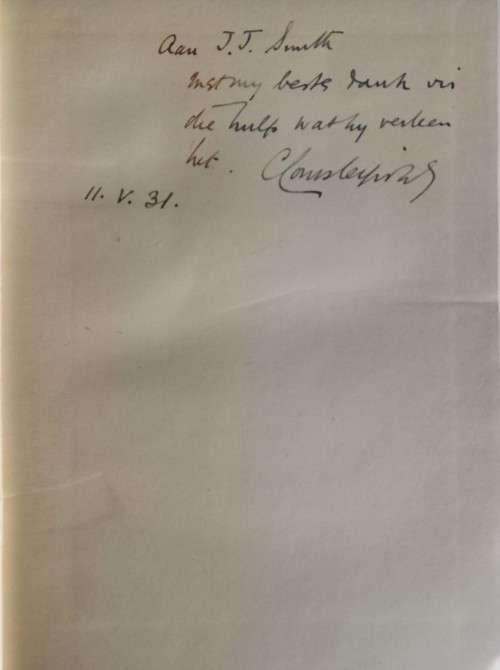 Aan J.J. Smith
Met my beste dank vir
die hulp wat hy verleen
het. C Louis Leipoldt
11. V. 31.